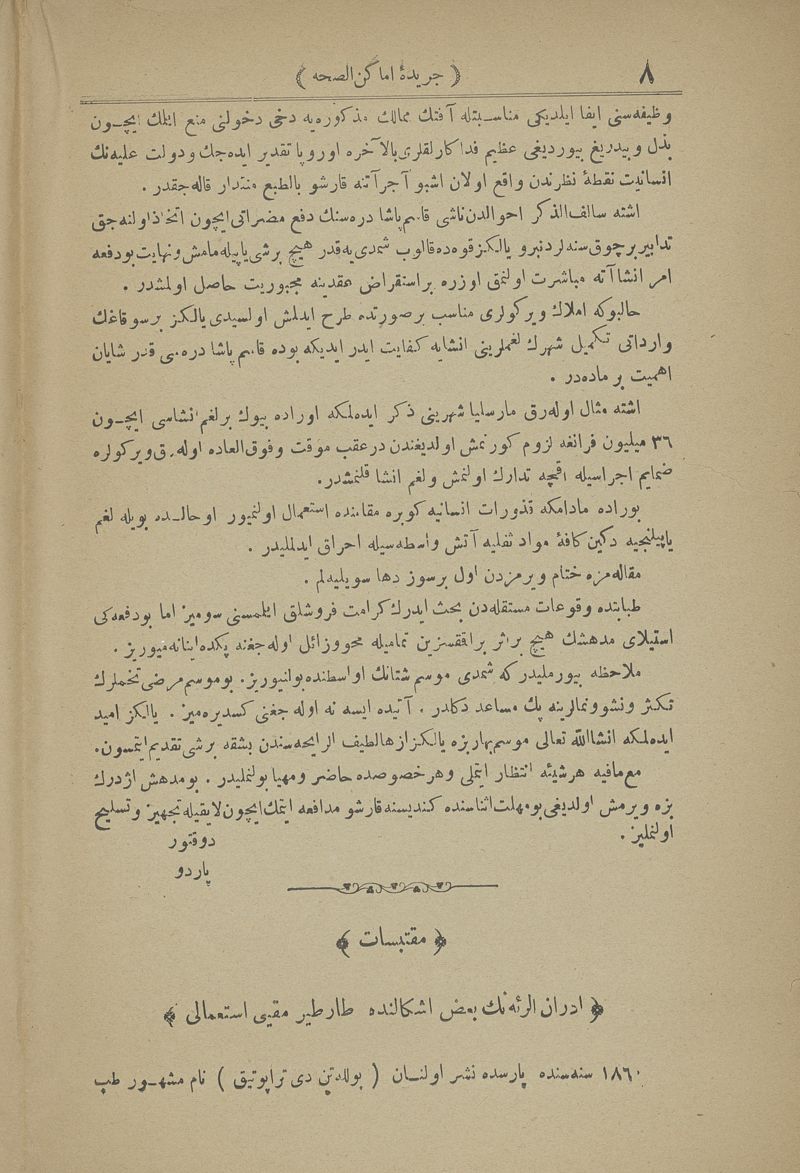 ٨
﴿ جريدهٔ اماكن الصحه ﴾
وظيفه‌سنى ايفا ايلديكى مناسبتله آفتك ممالك مذكوره‌يه دخى دخولنى منع ايتمك ايچون
بذل و بيدريغ بيورديغى عظيم فداكارلقلرى بالآخره اوروپا تقدير ايده‌جك و دولت عليه‌نك
انسانيت نقطهٔ نظرندن واقع اولان اشبو آجرآتنه قارشو بالطبع منتدار قاله‌جقدر .
اشته سالف الذكر احوالدن ناشى قاسم پاشا دره‌سنك دفع مضراتى ايچون اتخاذ اولنه‌جق
تدابير برچوق سنه‌لردنبرو يالكز قوه‌ده قالوب شمدى‌يه قدر هيچ برشى ياپيله‌مامش و نهايت بو دفعه
امر انشاآته مباشرت اولنمق اوزره بر استقراض عقدينه مجبوريت حاصل اولمشدر .
حالبوكه املاك ويركولرى مناسب بر صورتده طرح ايدلمش اولسيدى يالكز برسوقاغك
وارداتى تكميل شهرك لغملرينى انشايه كفايت ايدر ايديكه بوده قاسم پاشا دره‌سى قدر شايان
اهميت بر ماده‌در .
اشته مثال اوله‌رق مارسليا شهرينى ذكر ايده‌لمكه اوراده بيوك بر لغم انشاسى ايچون
٣٦ ميليون فرانغه لزوم كورنمش اولديغندن درعقب موقت و فوق العاده اوله‌رق ويركولره
ضمايم اجراسيله اقچه تدارك اولنمش و لغم انشا قلنمشدر.
بوراده مادامكه قذورات انسانيه كوبره مقامنده استعمال اولنميور او حالده بويله لغم
ياپيلنجيه دكين كافهٔ مواد ثفليه آتش واسطه‌سيله احراق ايدلمليدر .
مقاله‌مزه ختام ويرمزدن اول برسوز دها سويليه‌لم .
طبابتده وقوعات مستقله‌دن بحث ايدرك كرامت فروشلق ايتمسنى سوميز اما بو دفعه‌كى
استيلاى مدهشك هيچ بر اثر براققسزين تماميله محو و زائل اوله‌جغنه پكده اينانه‌ميوريز .
ملاحظه بيورمليدركه شمدى موسم شتانك اواسطنده بولنيوريز. بو موسم مرضى تخملرك
تكثر و نشو و نمالرينه پك مساعد دكلدر . آتيده ايسه نه اوله‌جغنى كسديره‌ميز . يالكز اميد
ايده‌لمكه انشاالله تعالى موسم بهار بزه يالكز ازهار لطيف الرايحه‌سندن بشقه برشى تقديم ايتمسون.
مع مافيه هر شيئه انتظار ايتملى و هر خصوصده حاضر و مهيا بولنمليدر . بو مدهش اژدرك
بزه ويرمش اولديغى بو مهلت اثناسنده كنديسنه قارشو مدافعه ايتمك ايچون لايقيله تجهيز و تسليح
اولنمليز .
دوقتور
پاردو
﴿ مقتبسات ﴾
﴿ ادران الرئه‌نك بعض اشكالنده طارطير مقيى استعمالى ﴾
١٨٦٠ سنه‌سنده پارسده نشر اولنان ( بوللەتن دى تراپوتيق ) نام مشهور طب